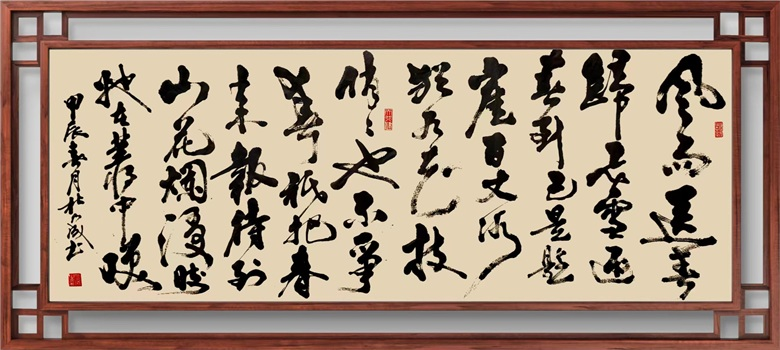 風雨送春
歸飛雪迎
春到已是懸
崖百丈冰
猶有花枝
俏〻也不爭
春祇把春
來報待到
山花爛漫時
她在叢中笑
甲辰春月杜成书